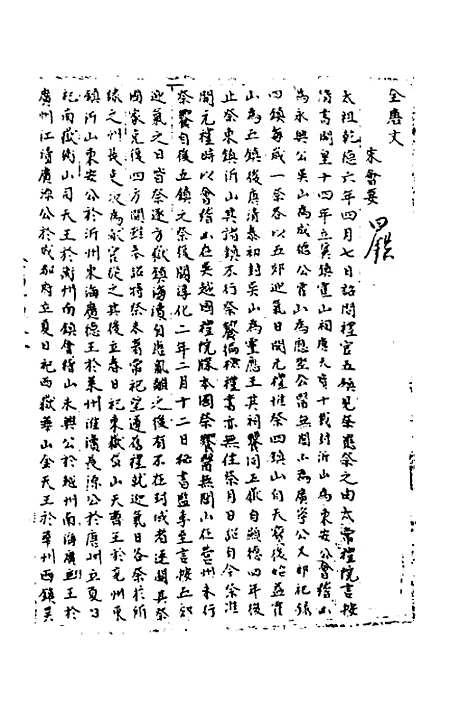 全唐文
宋會要
四鎮
太祖乾德六年四月七日詔問禮官五鎮見祭應祭之由太常禮院言按
隋書開皇十四年立冥鎮霍山祠唐天寶十載封沂山為東安公會稽山
為永興公吳山為成德公霍山為應聖公醫無閭山為廣寧公又郊祀錄
四鎮每歲一祭各以五郊迎氣日開元禮惟祭四鎮山自天寶後始益霍
山為五鎮後唐清泰初封吳山為靈應王其祠饗同五嶽自顯德四年後
止祭東鎮沂山其諸鎮不行祭饗徧檢禮書亦無住祭月日起自今祭准
開元禮時以會稽山在吳越國禮院牒本國祭饗醫無閭山在營州未行
祭饗自後五鎮之祭復闕淳化二年二月十二日秘書監李至言按五郊
迎氣之日皆祭逐方嶽鎮海瀆自唐亂離之後有不在封域者遂闕其祭
國家克復四方間雖奉詔特祭未著常祀望遵舊禮就迎氣日各祭於所
隸之州長吏次為獻官從之其後立春日祀東嶽岱山天齊王於兗州東
鎮沂山東安公於沂州東海廣德王於萊州淮瀆長源公於唐州立夏日
祀南嶽衡山司天王於衡州南鎮會稽山永興公於越州南海廣利王於
廣州江瀆廣源公於成都府立夏日祀西嶽華山金天王於華州西鎮吳